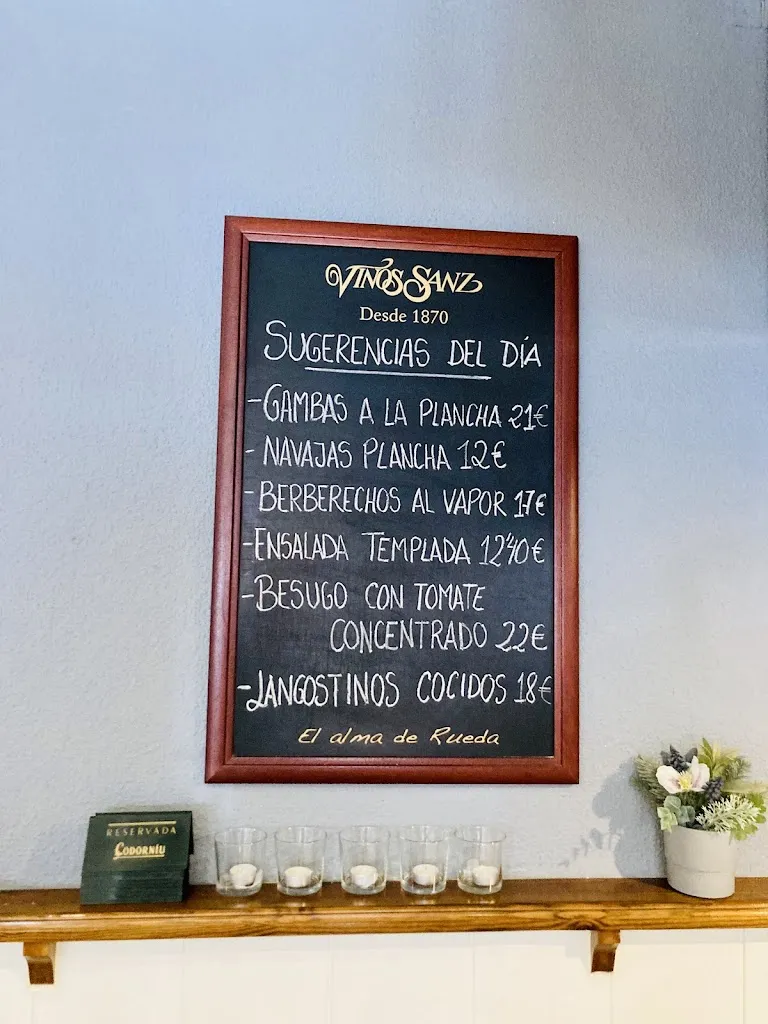 VINOS SANZ
Desde 1870
SUGERENCIAS DEL DÍA
-GAMBAS A LA PLANCHA 21€
-NAVAJAS PLANCHA 12€
-BERBERECHOS AL VAPOR 17€
-ENSALADA TEMPLADA 12'40€
-BESUGO CON TOMATE
CONCENTRADO 22€
-LANGOSTINOS COCIDOS 18€
El alma de Rueda
RESERVADA
CODORNÍU